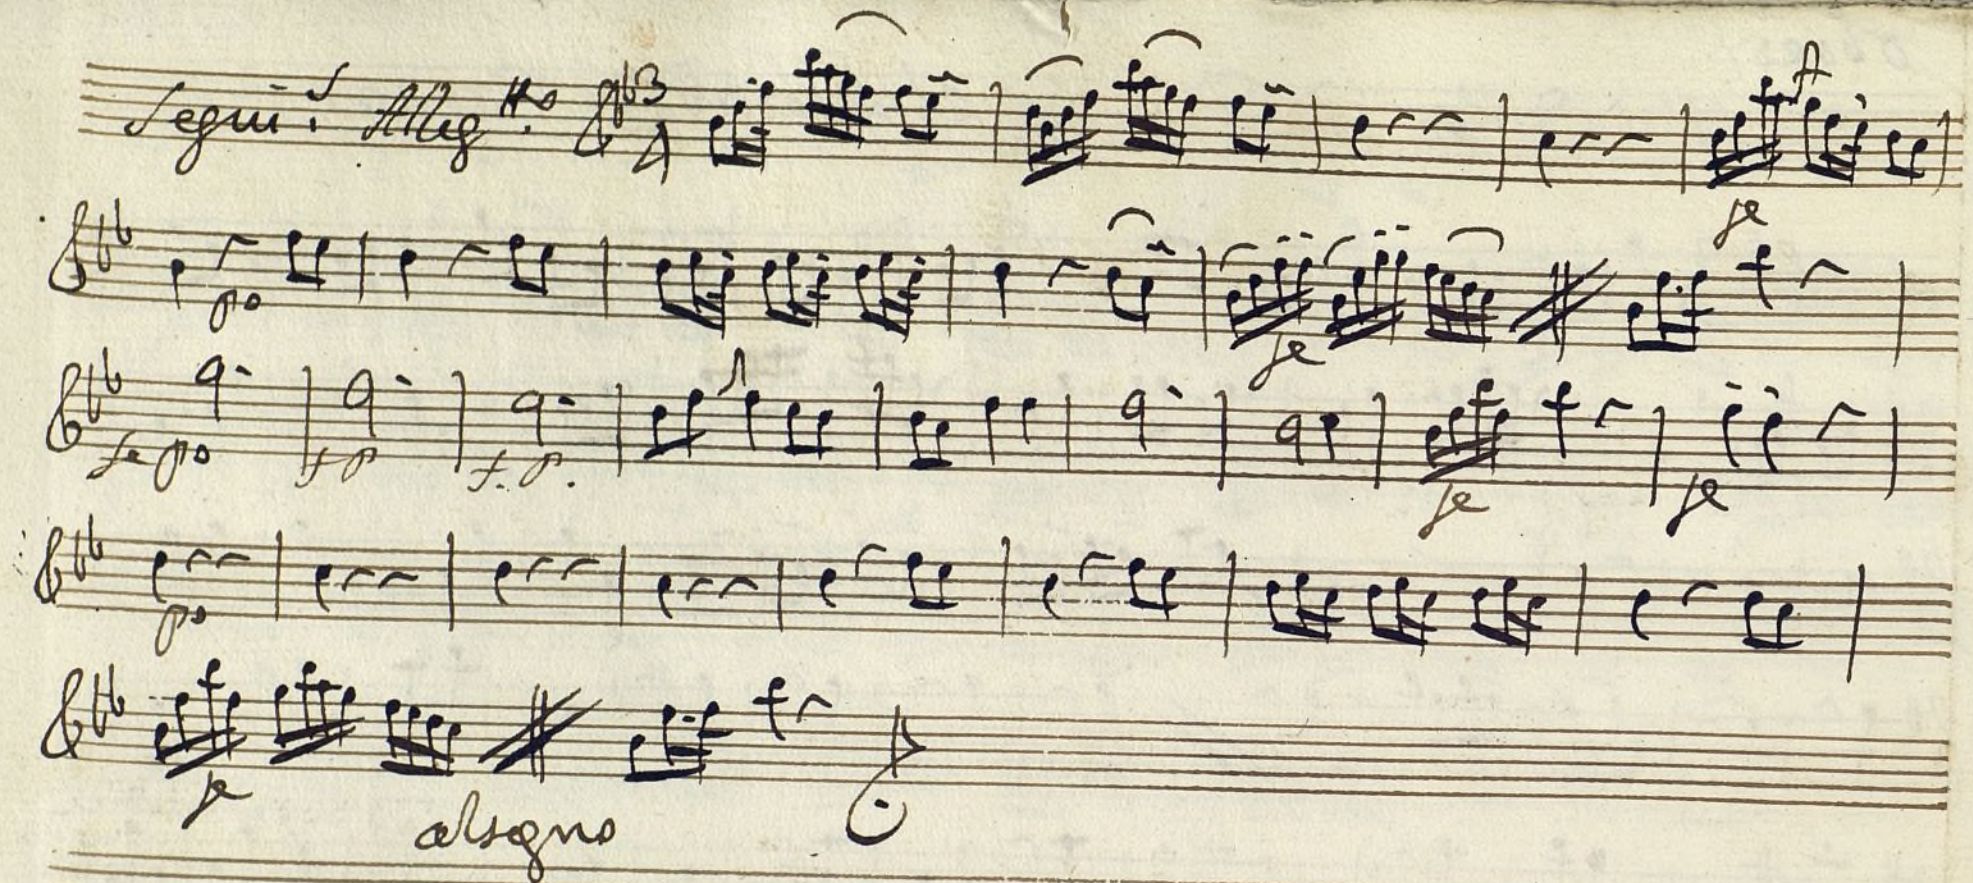 Segui.s Alleg.tto 3 4
fe
po fe
fe po f P f. P. fe fe
po
fe
al segno